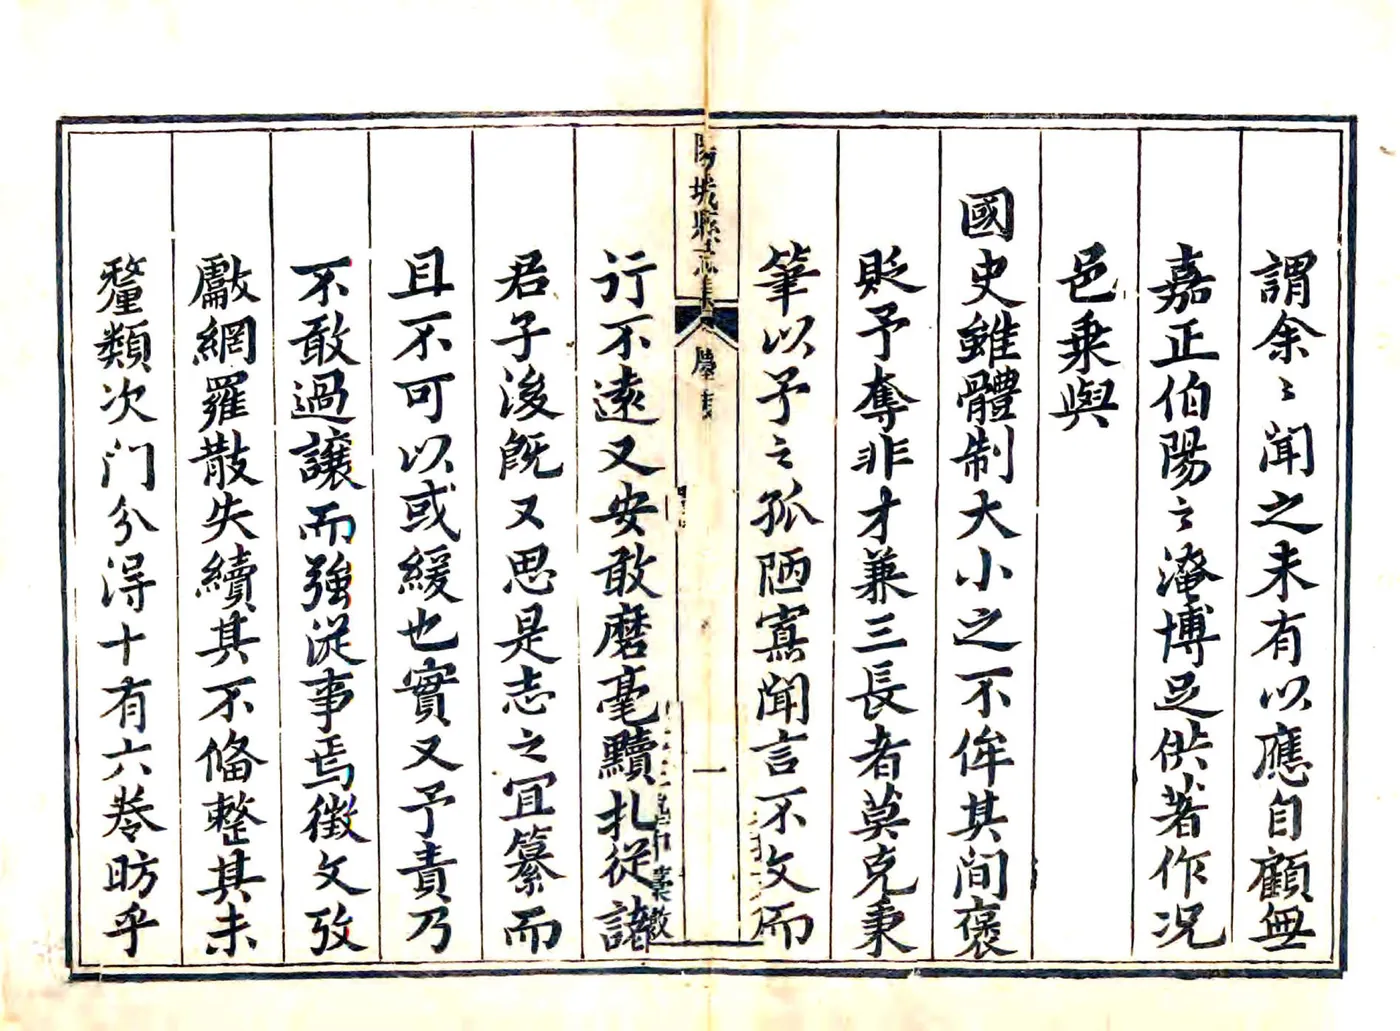 謂余〻聞之未有以應自顧無
嘉正伯陽〻淹博足供著作况
邑乗與
國史雖體制大小之不侔其间褒
貶予奪非才兼三長者莫克秉
筆以予之孤陋寡聞言不文而
陽城縣志
序
一
行不遠又安敢磨毫黷札従諸
君子浚既又思是志之宜纂而
且不可以或緩也實又予責乃
不敢過讓而強従事焉徵文攷
獻網羅散失續其不俻整其未
釐類次门分淂十有六卷昉乎